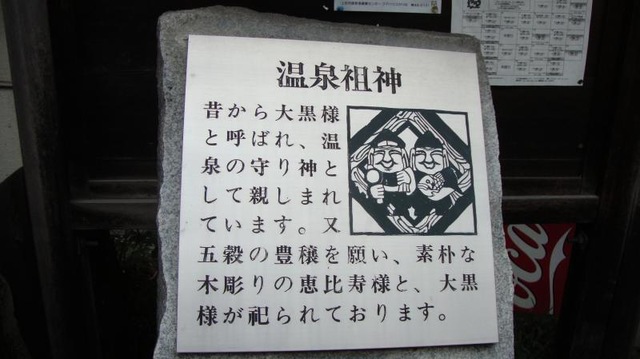 温泉祖神
昔から大黒様
と呼ばれ、温
泉の守り神と
して親しまれ
ています。又
五穀の豊穣を願い、素朴な
木彫りの恵比寿様と、大黒
様が祀られております。